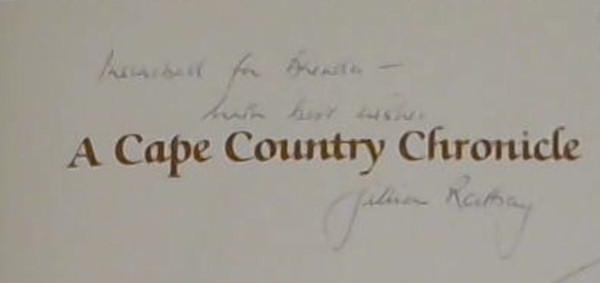 Inscribed for Brenda –
with best wishes.
A Cape Country Chronicle
Jillian Rattray